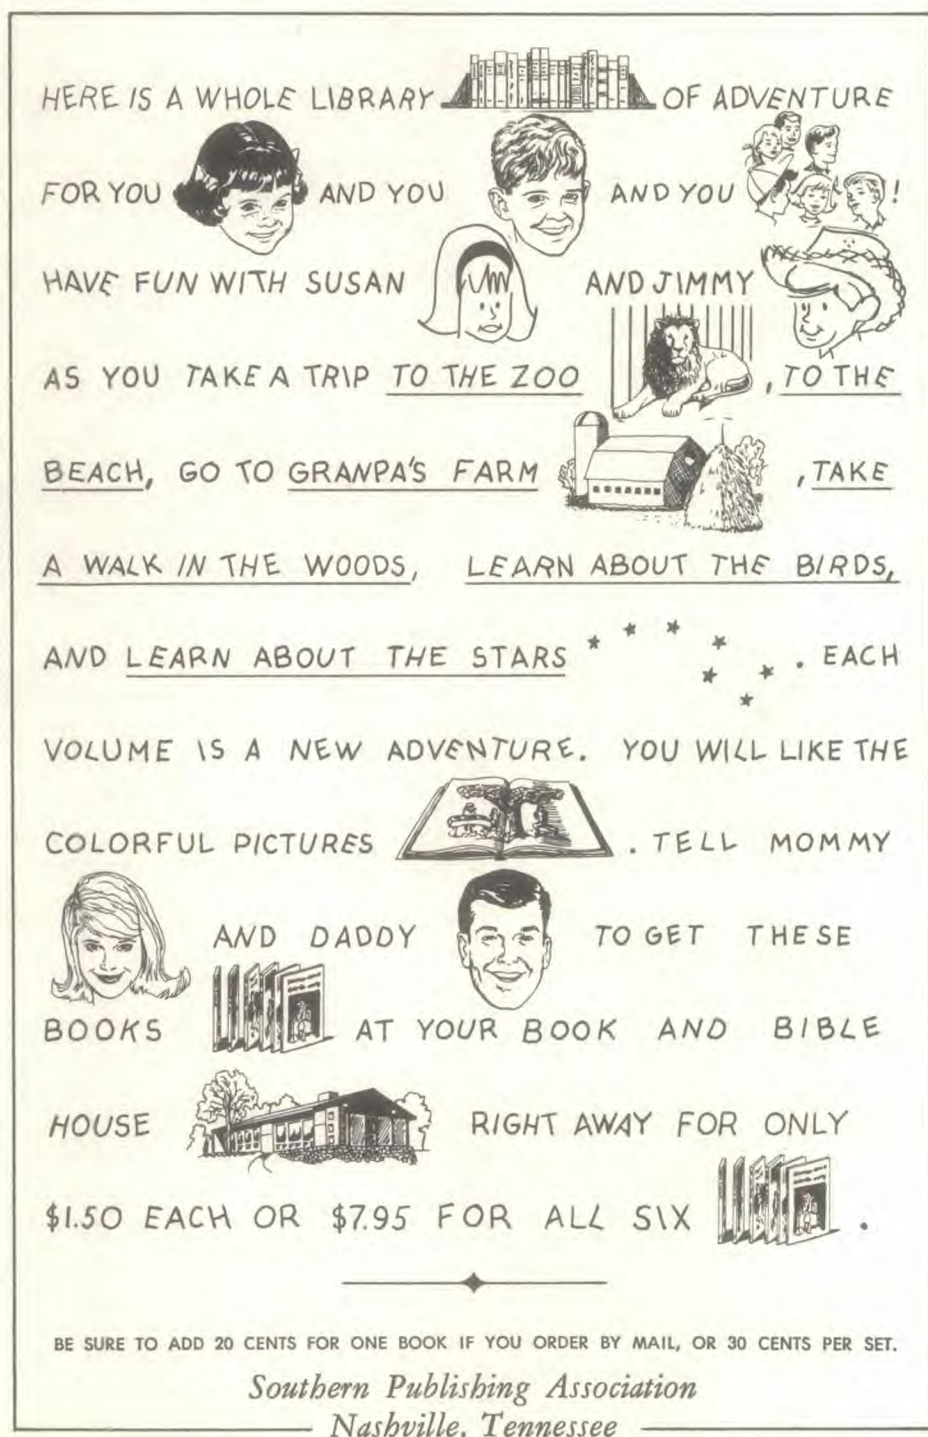 HERE IS A WHOLE LIBRARY OF ADVENTURE
FOR YOU AND YOU AND YOU !
HAVE FUN WITH SUSAN AND JIMMY
AS YOU TAKE A TRIP TO THE ZOO , TO THE
BEACH, GO TO GRANPA'S FARM , TAKE
A WALK IN THE WOODS, LEARN ABOUT THE BIRDS,
AND LEARN ABOUT THE STARS . EACH
VOLUME IS A NEW ADVENTURE. YOU WILL LIKE THE
COLORFUL PICTURES . TELL MOMMY
AND DADDY TO GET THESE
BOOKS AT YOUR BOOK AND BIBLE
HOUSE RIGHT AWAY FOR ONLY
$1.50 EACH OR $7.95 FOR ALL SIX .
BE SURE TO ADD 20 CENTS FOR ONE BOOK IF YOU ORDER BY MAIL, OR 30 CENTS PER SET.
Southern Publishing Association
Nashville, Tennessee